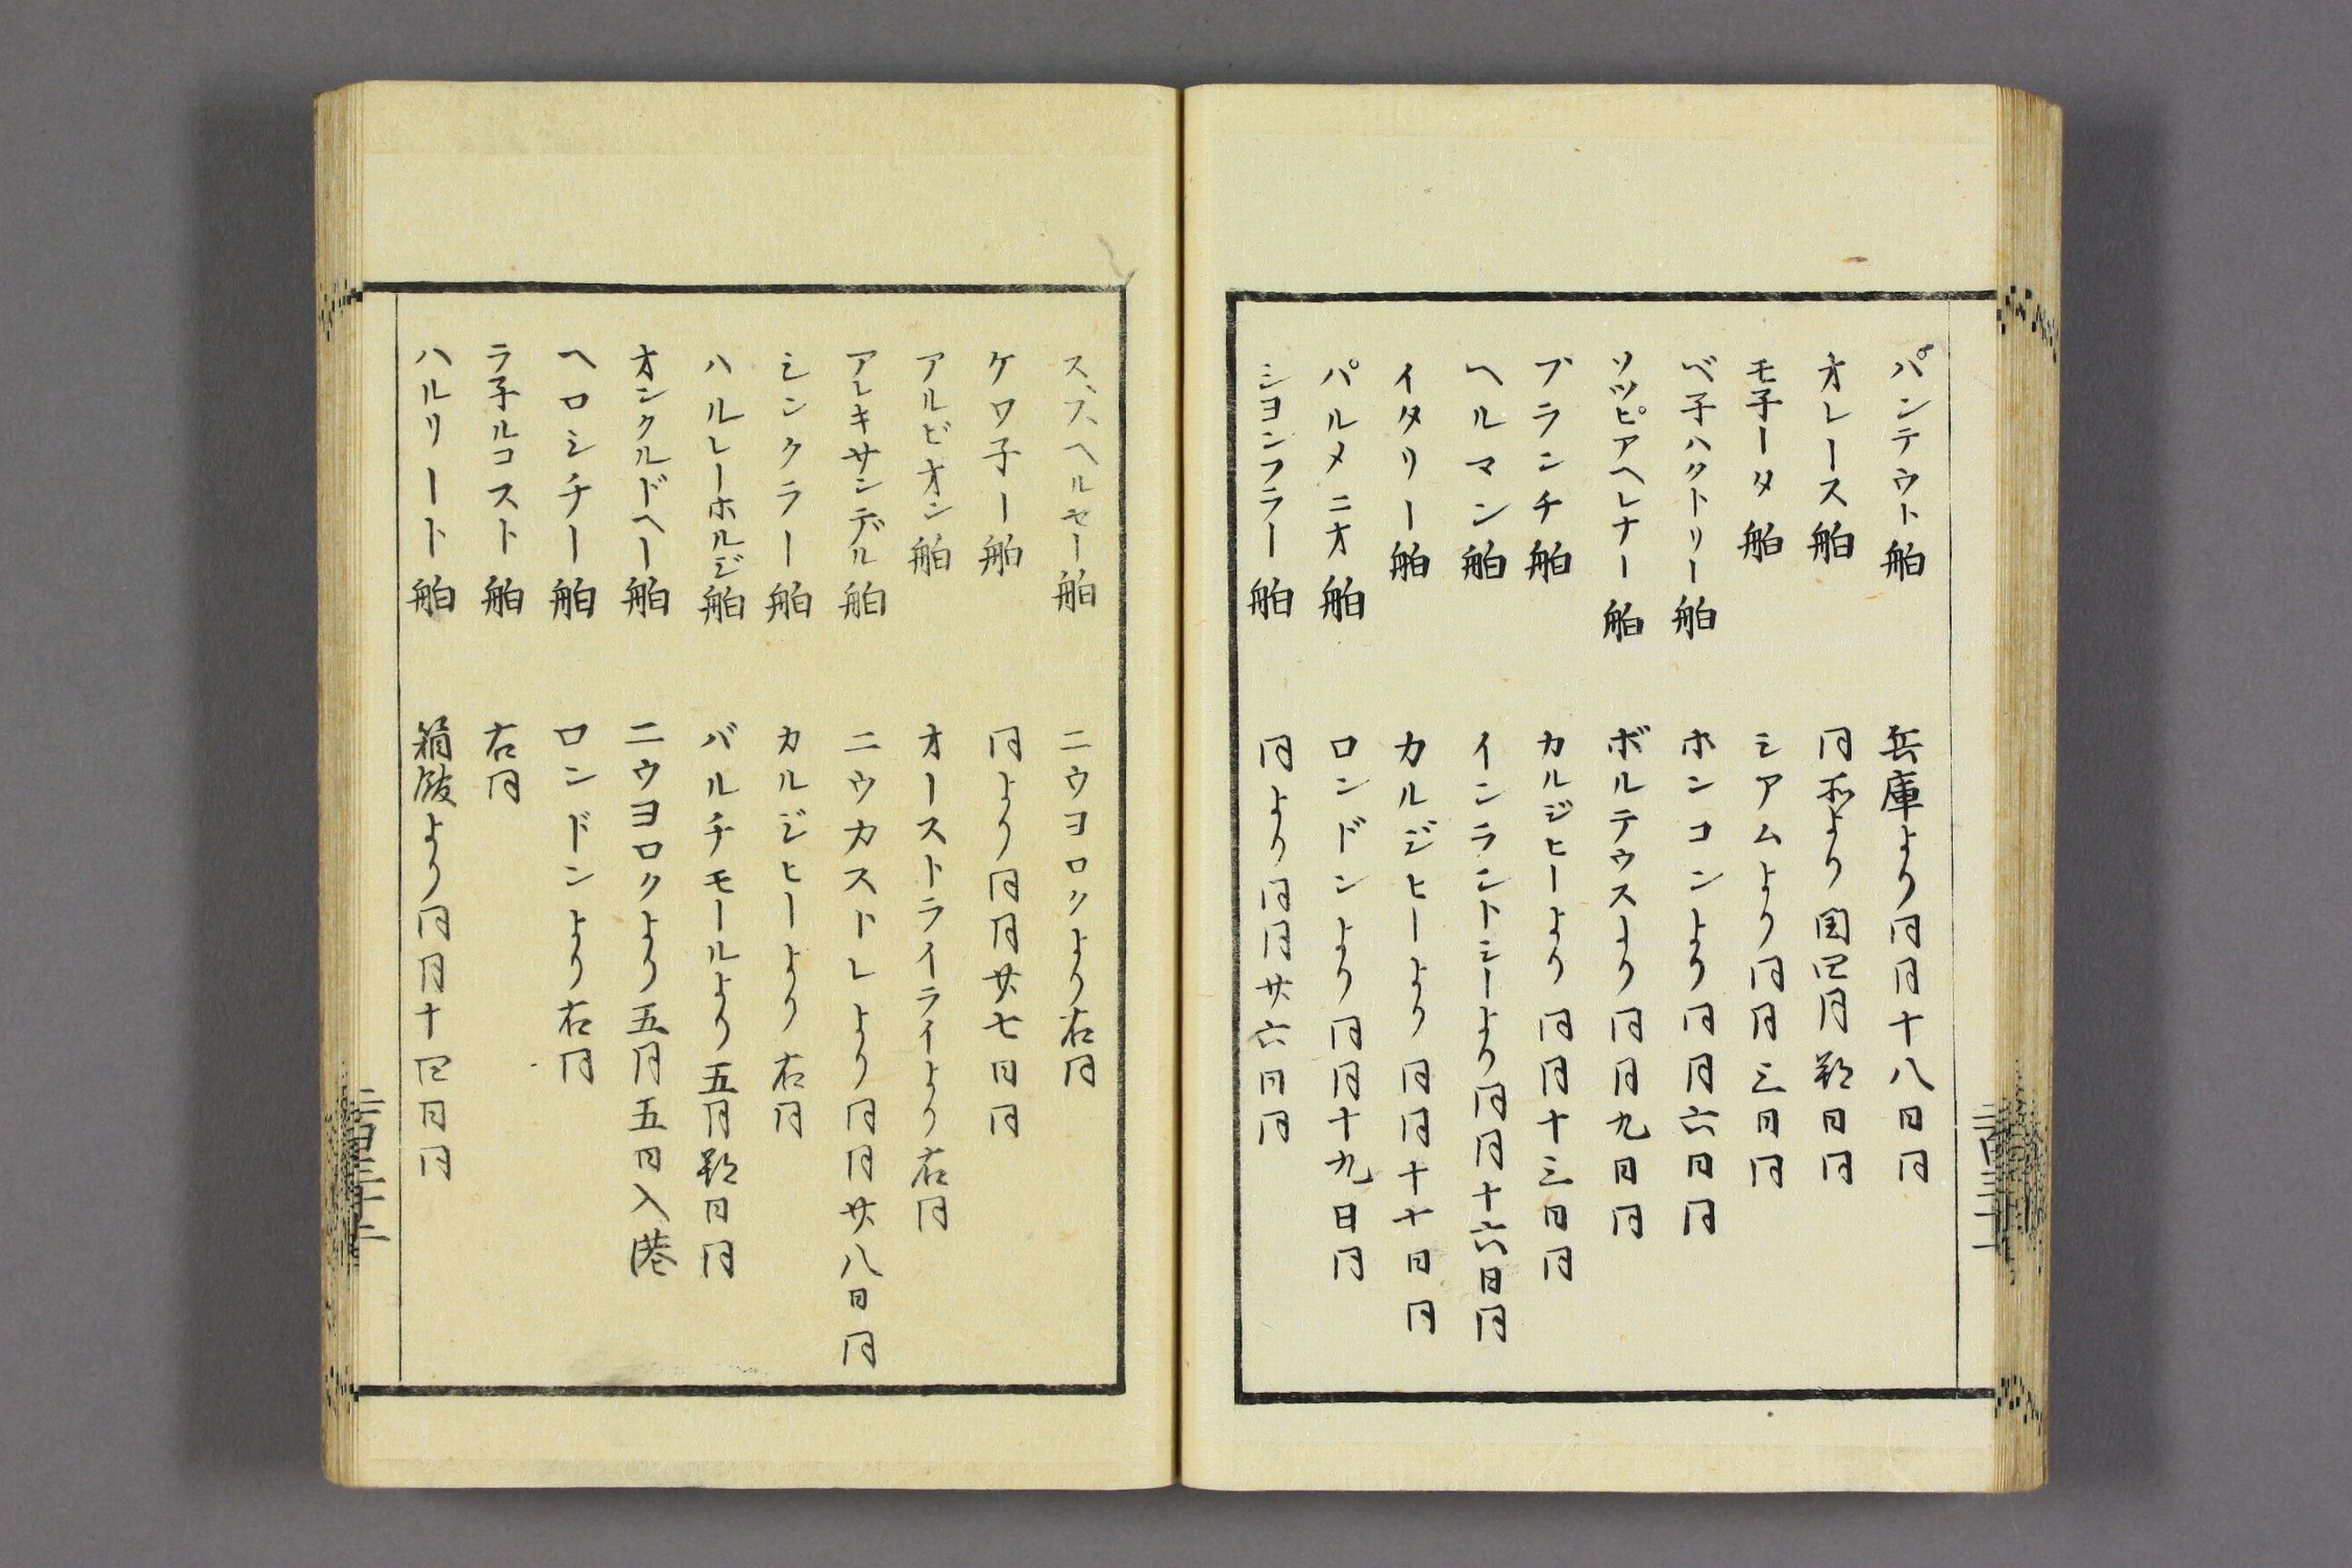 パンテウト舶 兵庫より同月十八日同
オレース舶 同所より閏四月朔日同
モ子ータ舶 シアムより同月三日同
ベ子ハクトリー舶 ホンコンより同月六日同
ソツピアヘレナー舶 ボルテウスより同月九日同
ブランチ舶 カルジヒーより同月十三日同
ヘルマン舶 インラントシーより同月十六日同
イタリー舶 カルジヒーより同月十七日同
パルメニオ舶 ロンドンより同月十九日同
シヨンフラー舶 同より同月廿六日同
二百三十一
ススヘルセー舶 ニウヨロクより右同
ケワ子ー舶 同より同月廿七日同
アルビオン舶 オーストライライより右同
アレキサンデル舶 ニウカストレより同月廿八日同
シンクラー舶 カルジヒーより右同
ハルレーホルジ舶 バルチモールより五月朔日同
オンクルドヘー舶 ニウヨロクより五月五日入港
ヘロシチー舶 ロンドンより右同
ラ子ルコスト舶 右同
ハルリート舶 箱館より同月十四日同
二百三十二